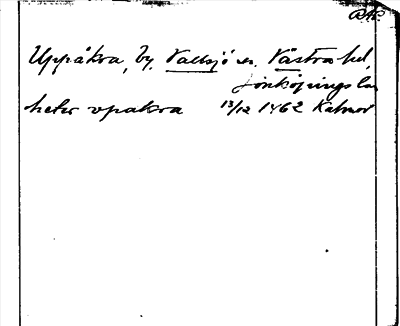 Uppåkra, by, Vallsjö sn. Västra hd,
Jönköpings län
heter vpakra 13/12 1462 Kalmar